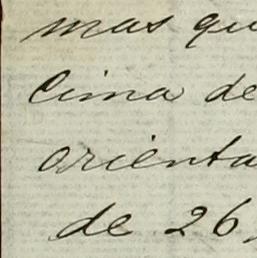 mas qu
cima de
orienta
de 26,